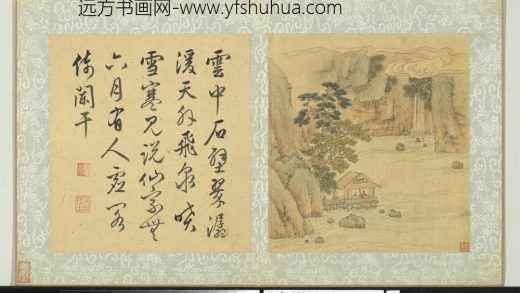 远方书画网-www.yfshuhua.com
雲中石壁翠潺
湲天外飛泉
雪寒見說仙家無
六月有人虛閣
倚闌干